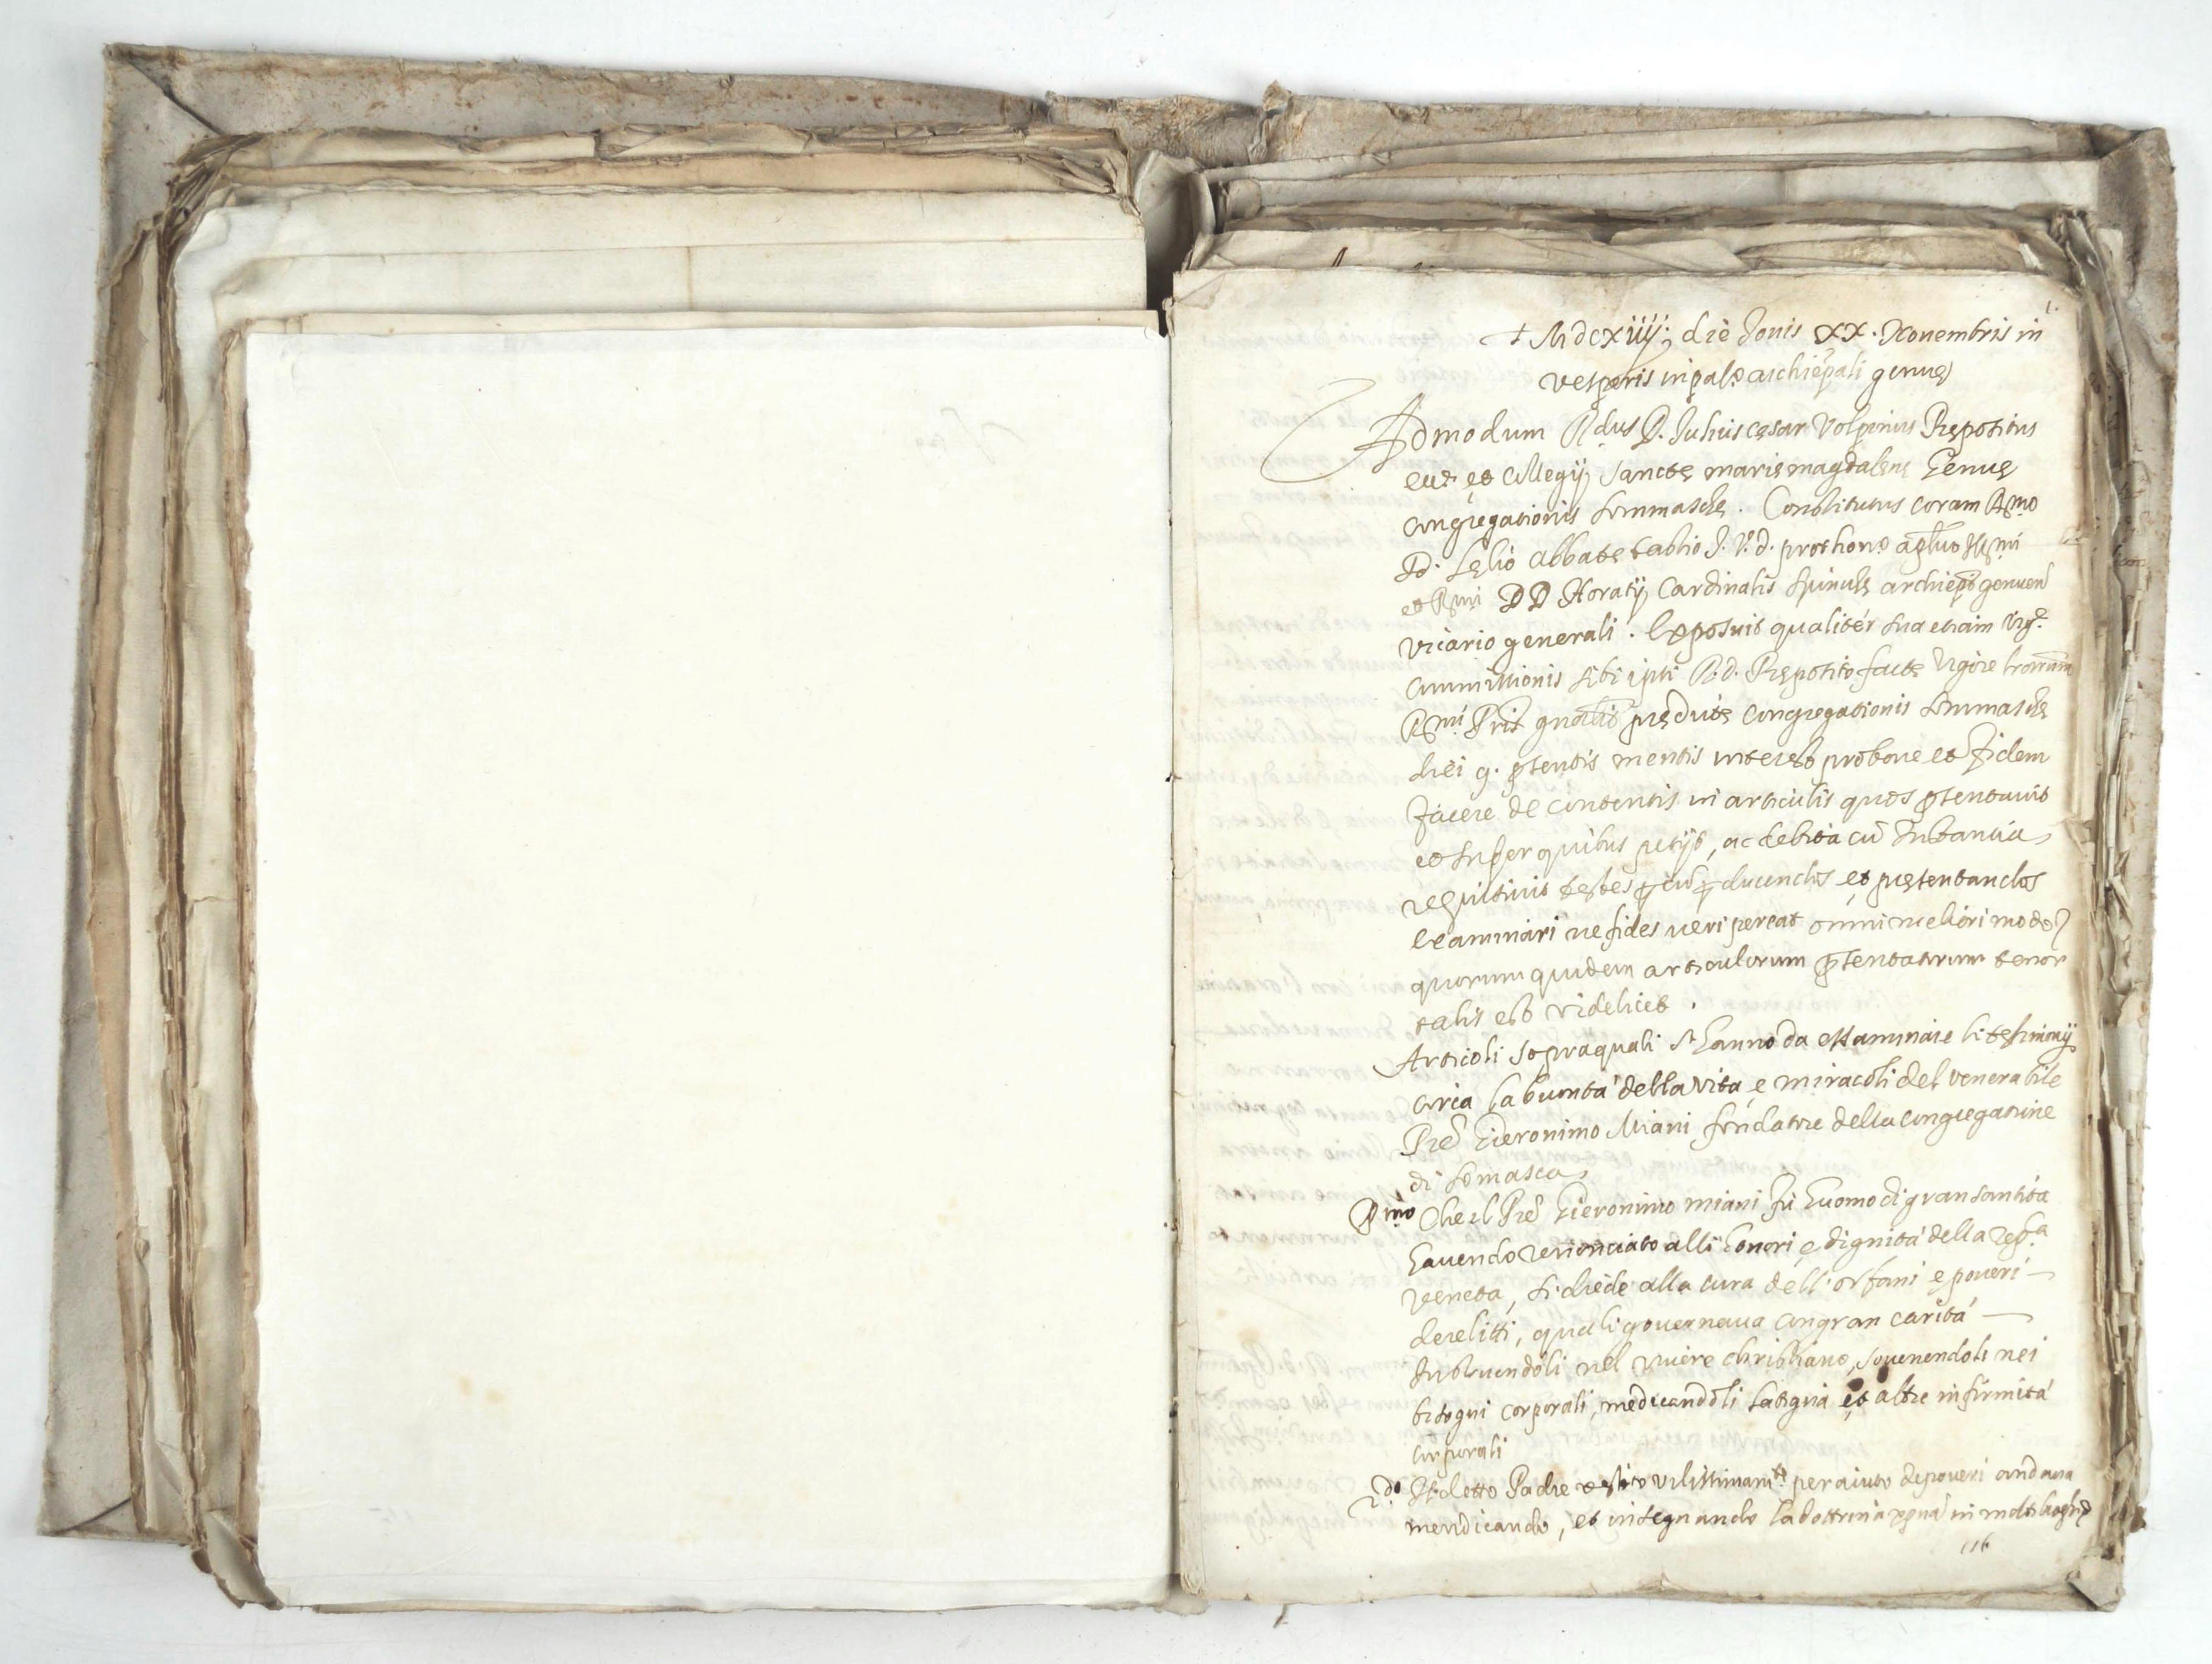 1.
+ MdcXiiij: die Jovis XX. Novembris in
vesperis in palo archiepali genuę
Admodum Rdus D. Julius cęsar Volpinus Prępositus
et Collegij Sanctę marię magdalenę Genuę
congregationis Sommaschę. Constitutus coram Rmo
D. Lęlio Abbate tablio J. V. d. prothono aplico Illmi
et Rmi DD Horatij Cardinalis Spinulę archiepi genuen
vicario generali. Exposuit qualiter sua etiam
commissionis sibi ipsi R. d. Pręposito factę vigore
Rmi Pris gnalis pręductę congregationis Sommaschę
diei 9. pſentis mensis interest probare et fidem
facere de contentis in articulis quos pſentavit
et super quibus petijt, ac debita cũ instantia
requisivit testes p eũ pducendos et pręsentandos
examinari ne fides veri pereat omni meliori modo
quorum quidem articulorum pſentatorum tenor
talis est videlicet.
Articoli sopra quali s'hanno da essaminare li testimonij
circa la buontà della vita, e miracoli del Venerabile
Pre Gieronimo Miani fondatore della congregatione
di Somasca
Pmo Che il Pre Gieronimo miani fù huomo di gran santità
havendo renonciato alli honori, e dignità della repca
veneta, si diede alla cura delli orfani e poveri
derelitti, quali governava con gran carità
Instruendoli nel vivere christiano, sovenendoli nei
bisogni corporali, medicandoli la tigna et altre infirmità
corporali
2do Il detto Padre vestito vilissimamte per aiuto de poveri andava
mendicando, et insegnando la dottrina xpna in molti luoghi
116